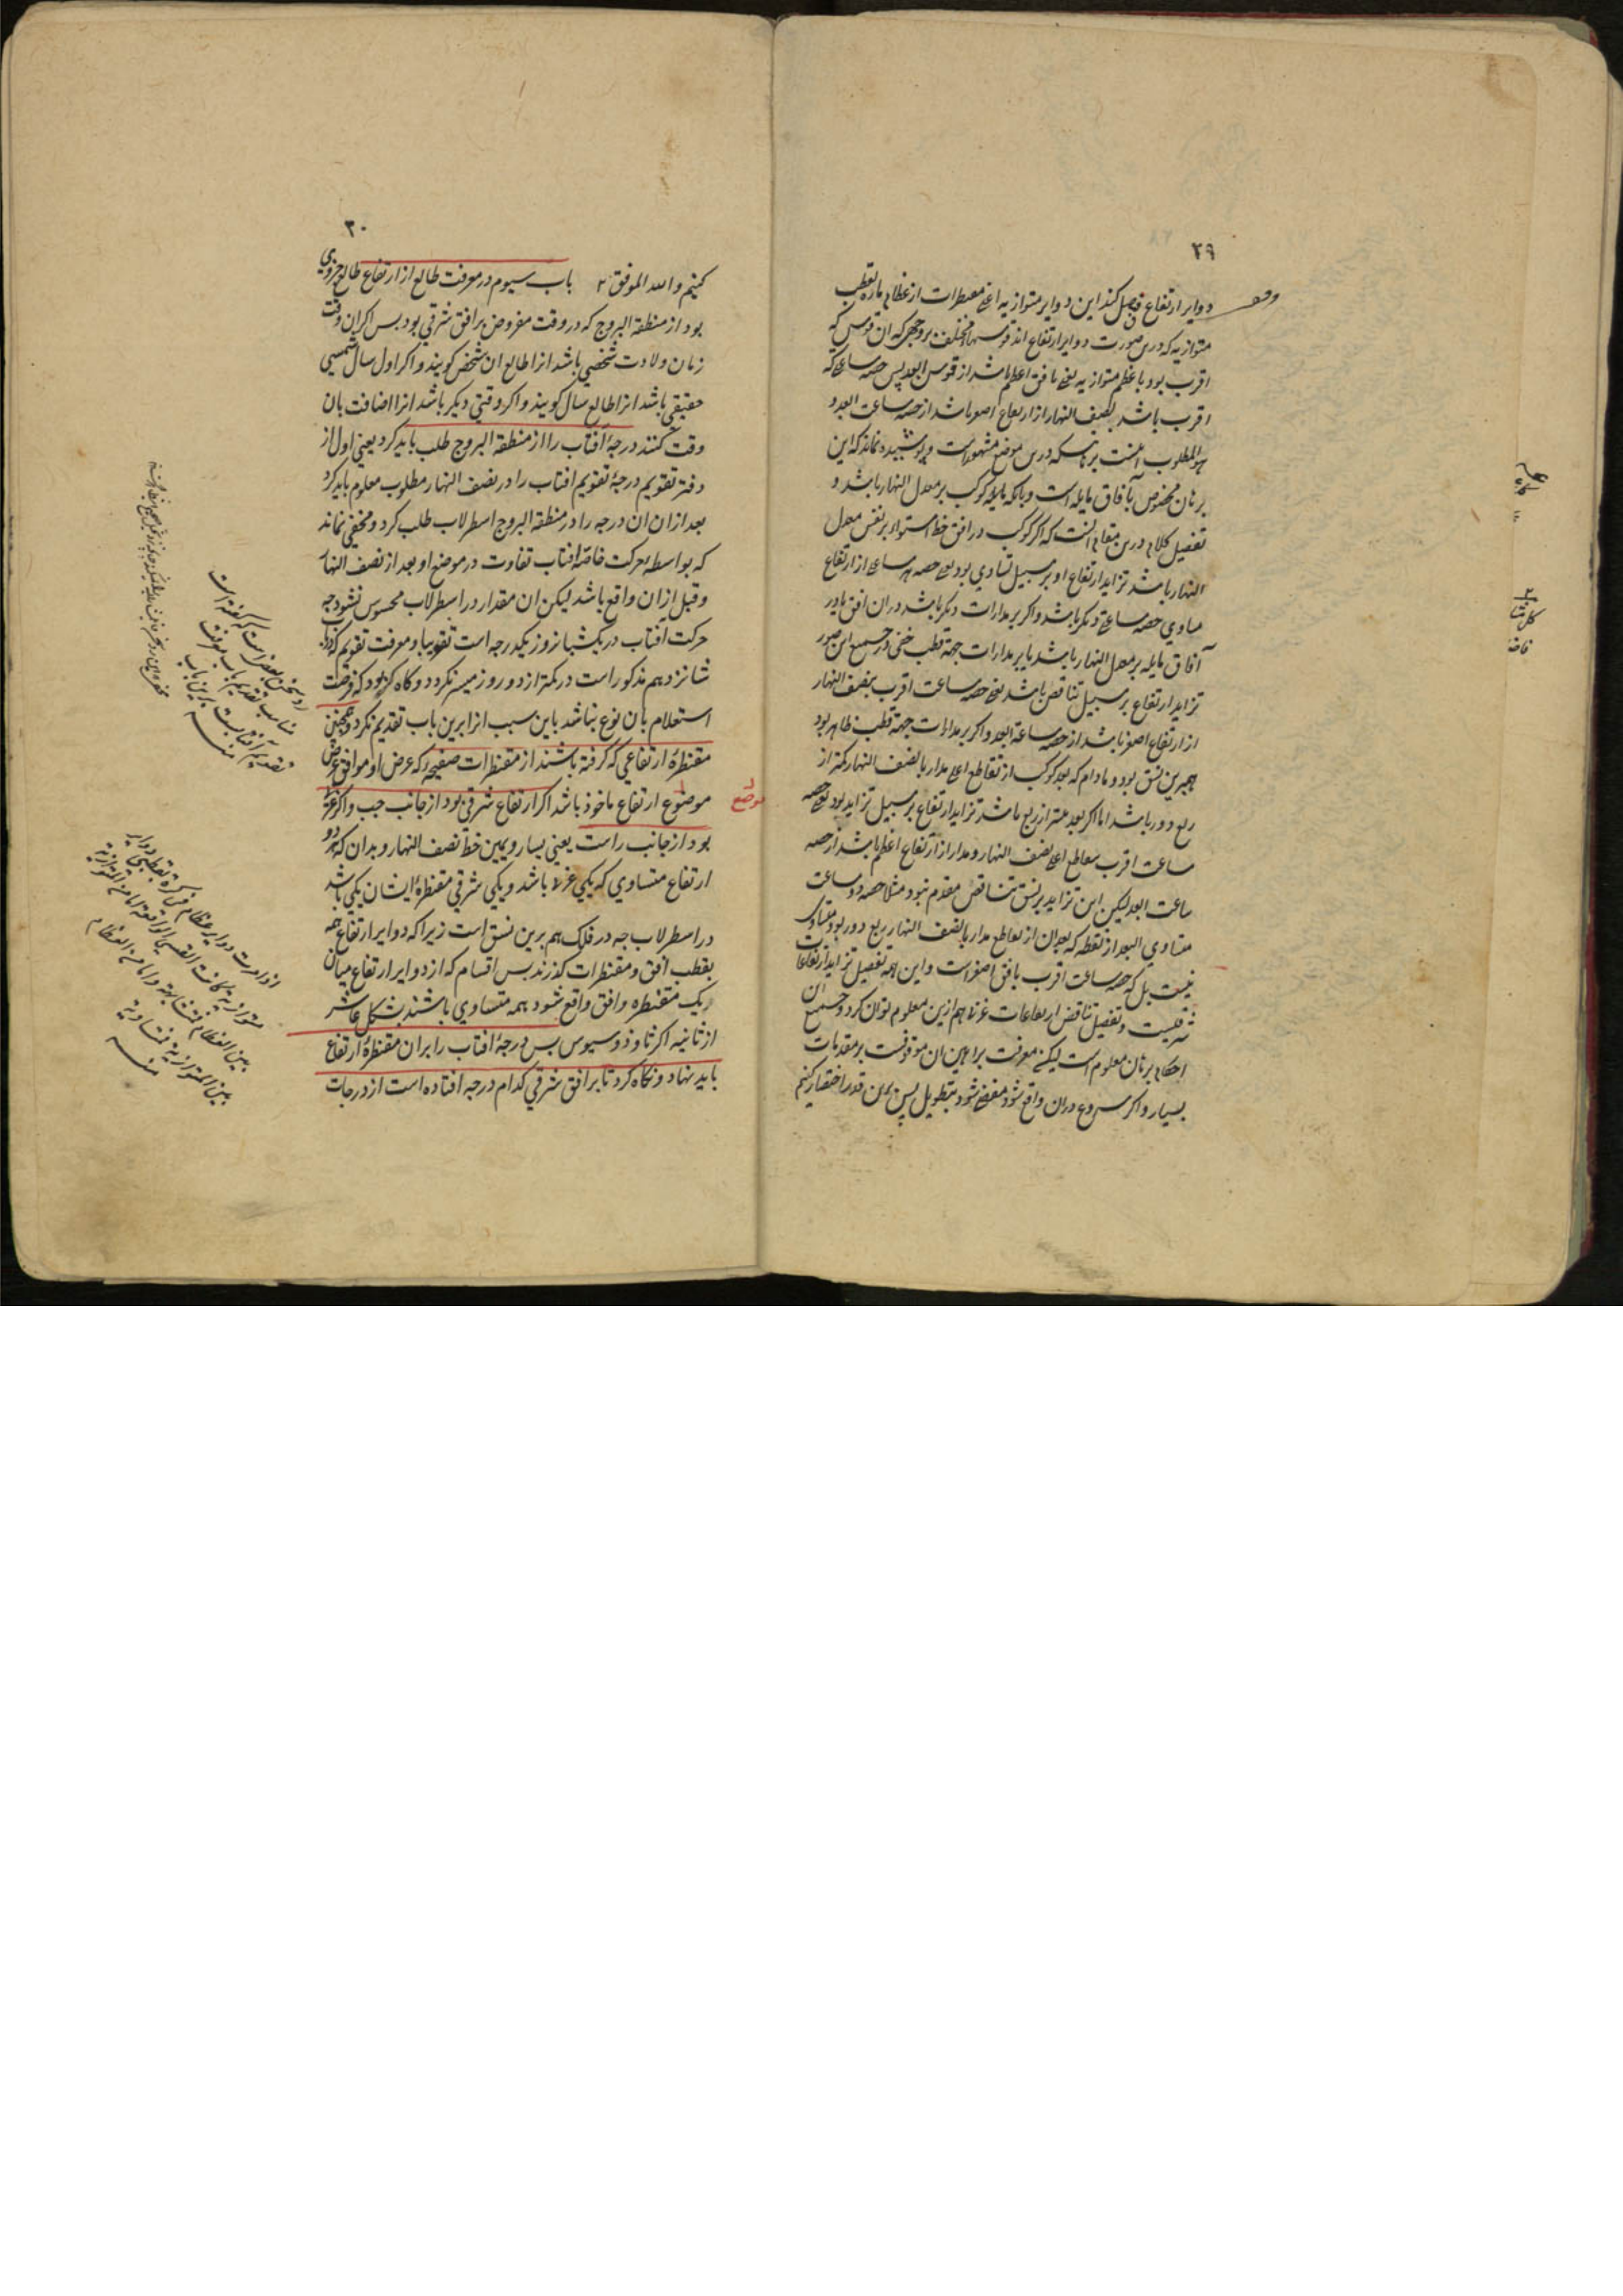 ٢٩
دوایر ارتفاع فصل کند این دوایر متوازیه اعنی مقنطرات از عظام ماره بقطب
متوازیه که درین صورت دوایر ارتفاع اند قوسهاء مختلفه بر وجهی که ان قوس که
اقرب بود باعظم متوازیه یعنی بافق اعظم باشد از قوس ابعد پس حصه ساعتی که
اقرب باشد بنصف النهار از ارتفاع اصغر باشد از حصه ساعت ابعد و
هو المطلوب اینست برهانی که درین موضع مشهور است و پوشیده نماند که این
برهان مخصوص بآفاق مایله است و بانکه کوکب بر معدل النهار باشد و
تفصیل کلام درین مقام انست که اگر کوکب در افق خط استواء بر نفس معدل
النهار باشد تزاید ارتفاع او بر سبیل تساوی بود یعنی حصه هر ساعتی از ارتفاع
مساوی حصه ساعتی دیگر باشد و اگر بر مدارات دیگر باشد در ان افق یا در
آفاق مایله بر معدل النهار باشد یا بر مدارات جهة قطب خفی در جمیع این صور
تزاید ارتفاع بر سبیل تناقص باشد یعنی حصه ساعت اقرب بنصف النهار
از ارتفاع اصغر باشد از حصه ساعة ابعد و اگر بر مدارات جهة قطب ظاهر بود
همبرین نسق بود و مادام که بعد کوکب از تقاطع اعلی مدار با نصف النهار کمتر از
ربع دور باشد اما اگر بعد بیشتر از ربع باشد تزاید ارتفاع بر سبیل تزاید بود یعنی حصه
ساعت اقرب بتقاطع اعلی نصف النهار و مدار از ارتفاع اعظم باشد از حصه
ساعت ابعد لیکن این تزاید بر نسق تناقص مقدم نبود مثلا حصه دو ساعت
متساوی البعد از نقطه که بعد ان از تقاطع مدار با نصف النهار ربع دور بود متساوی
نیست بل که حصه ساعت اقرب بافق اصغر است و این همه تفصیل تزاید ارتفاعات
شرقیست و تفصیل تناقص ارتفاعات غربی هم ازین معلوم توان کرد و جمیع ان
احکام ببرهان معلوم است لیکن معرفت براهین ان موقوفست بر مقدمات
بسیار و اگر شروع دران واقع شود مفضی شود بتطویل پس برین قدر اختصار کنیم
٣٠
کنیم و الله الموفق باب سیوم در معرفت طالع از ارتفاع طالع جزوی
بود از منطقة البروج که در وقت مفروض بر افق شرقی بود بس اکر ان وقت
زمان ولادت شخصی باشد انرا طالع ان شخص کویند و اکر اول سال شمسی
حقیقی باشد انرا طالع سال کویند و اکر وقتی دیکر باشد انرا اضافت بان
وقت کنند درجۀ آفتاب را از منطقة البروج طلب باید کرد یعنی اول از
دفتر تقویم درجۀ تقویم افتاب را در نصف النهار مطلوب معلوم باید کرد
بعد ازان ان درجه را در منطقة البروج اسطرلاب طلب کرد و مخفی نماند
که بواسطۀ حرکت خاصۀ افتاب تفاوت در موضع او بعد از نصف النهار
و قبل ازان واقع باشد لیکن ان مقدار در اسطرلاب محسوس نشود جه
حرکت افتاب در یکشبانروز یکدرجه است تقریبا و معرفت تقویم که در باب
شانزدهم مذکور است در کمتر از دو روز میسر نکردد و کاه بود که فرصت
استعلام بان نوع نباشد باین سبب انرا برین باب تقدیم نکرد و همچنین
مقنطرۀ ارتفاعی که کرفته باشند از مقنطرات صفیحۀ که عرض او موافق عرض
موضوع ارتفاع ماخوذ باشد اکر ارتفاع شرقی بود از جانب جب و اکر غربی
موضع
بود از جانب راست یعنی یسار و یمین خط نصف النهار و بدان که هر دو
ارتفاع متساوی که یکی غربی باشد و یکی شرقی مقنطرۀ ایشان یکی باشد
در اسطرلاب جه در فلک هم برین نسق است زیرا که دوایر ارتفاع همه
بقطب افق و مقنطرات کذرند بس اقسام که از دوایر ارتفاع میان
یک مقنطره و افق واقع شود همه متساوی باشند بشکل عاشر
از ثانیه اکر ثاوذوسیوس بس درجۀ افتاب را بران مقنطرۀ ارتفاع
باید نهاد و نکاه کرد تا بر افق شرقی کدام درجه افتاده است از درجات
مناسب تقدیم باب معرفت
تقویم آفتابست برین باب
منه
اذا مرت دوایر عظام فی کرة بقطبی دوایر
متوازیة کانت القسی الواقعة اما من المتوازیة
بین العظام فمتشابهة و اما من العظام
بین المتوازیة فمتساویة
منه